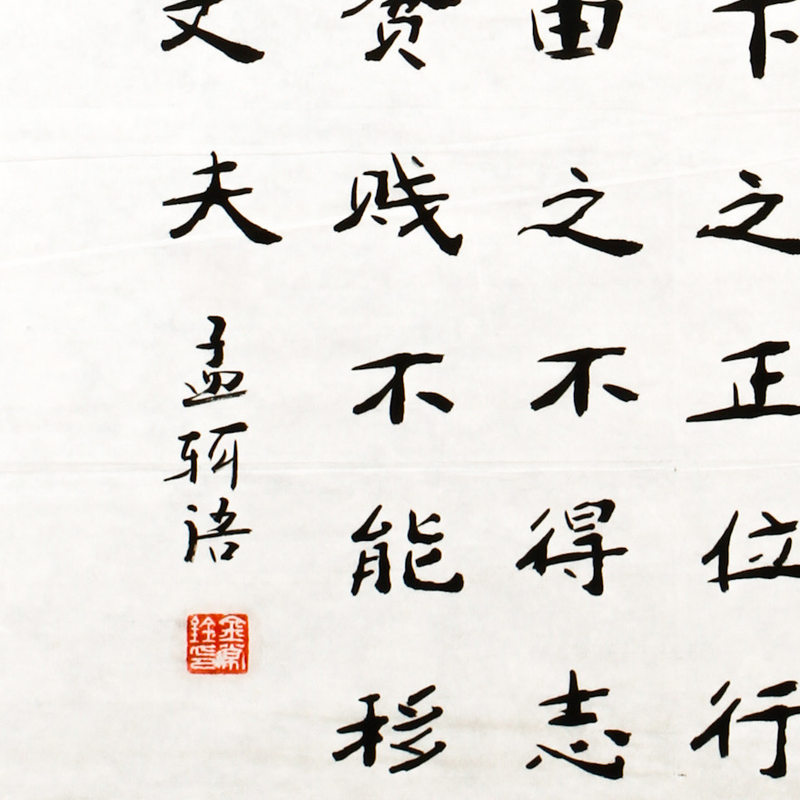 下之正位行
由之不得志
贫贱不能移
丈夫
孟轲语